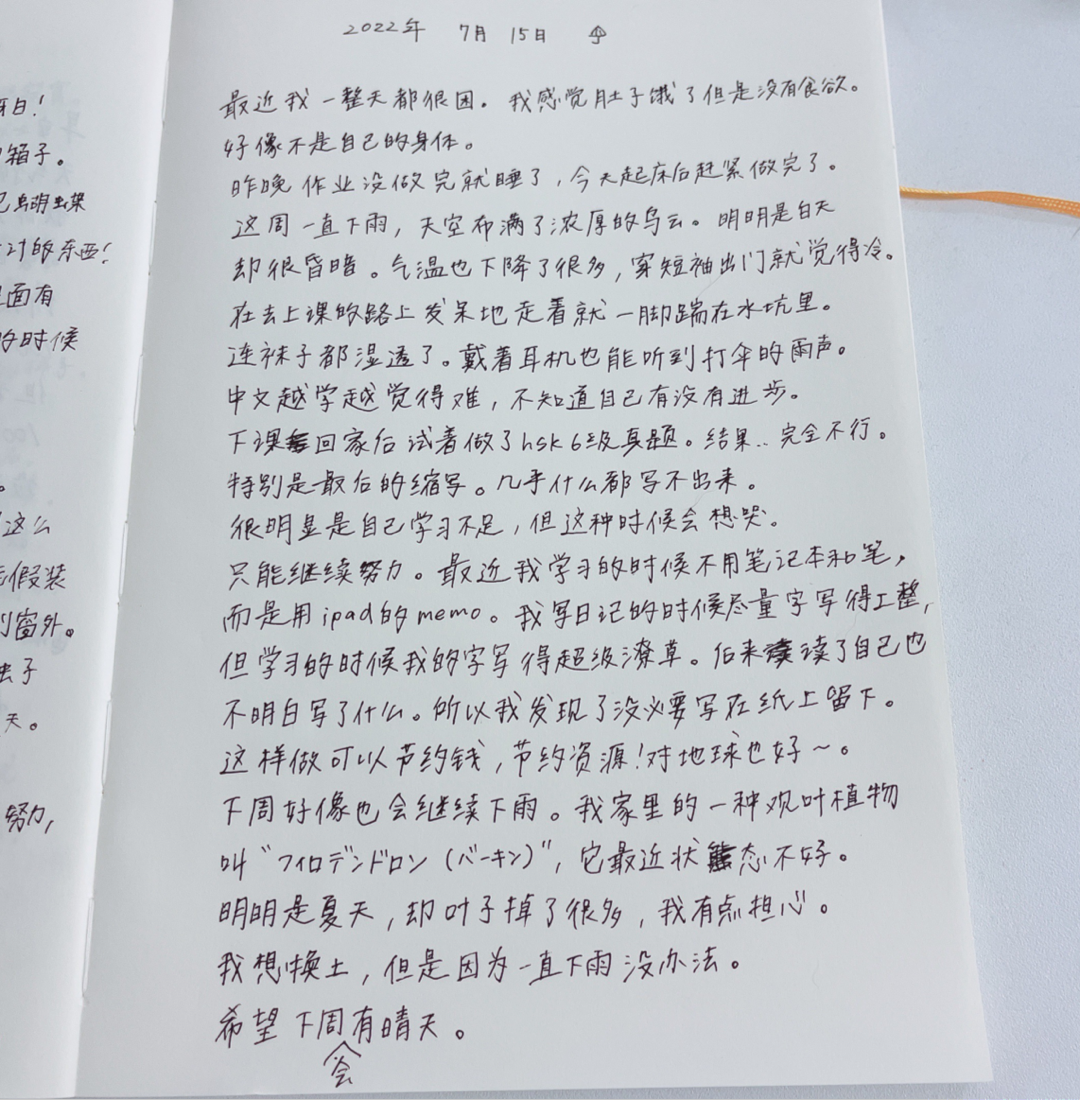 2022年 7月 15日
最近我一整天都很困。我感觉肚子饿了但是没有食欲。
好像不是自己的身体。
昨晚作业没做完就睡了，今天起床后赶紧做完了。
这周一直下雨，天空布满了浓厚的乌云。明明是白天
却很昏暗。气温也下降了很多，穿短袖出门就觉得冷。
在去上课的路上发呆地走着就一脚踹在水坑里。
连袜子都湿透了。戴着耳机也能听到打伞的雨声。
中文越学越觉得难，不知道自己有没有进步。
下课回家后试着做了hsk6级真题。结果..完全不行。
特别是最后的缩写。几乎什么都写不出来。
很明显是自己学习不足，但这种时候会想哭。
只能继续努力。最近我学习的时候不用笔记本和笔，
而是用ipad的memo。我写日记的时候尽量字写得工整，
但学习的时候我的字写得超级潦草。后来读了自己也
不明白写了什么。所以我发现了没必要写在纸上留下。
这样做可以节约钱，节约资源！对地球也好～。
下周好像也会继续下雨。我家里的一种观叶植物
叫“フィロデンドロン（バーキン）”，它最近状态不好。
明明是夏天，却叶子掉了很多，我有点担心。
我想换土，但是因为一直下雨没办法。
希望下周会有晴天。
每日！
箱子。
己蝴蝶
时的东西！
里面有
的时候
。
这么
假装
到窗外。
虫子
天。
努力，